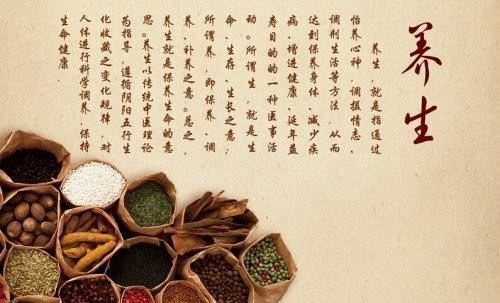 养生
养生，就是指通过
怡养心神，调摄情志、
调剂生活等方法，从而
达到保养身体、减少疾
病、增进健康、延年益
寿目的的一种医事活
动。所谓生，就是生
命、生存、生长之意；
所谓养，即保养、调
养、补养之意。总之，
养生就是保养生命的意
思。养生以传统中医理论
为指导，遵循阴阳五行生
化收藏之变化规律，对
人体进行科学调养，保持
生命健康。